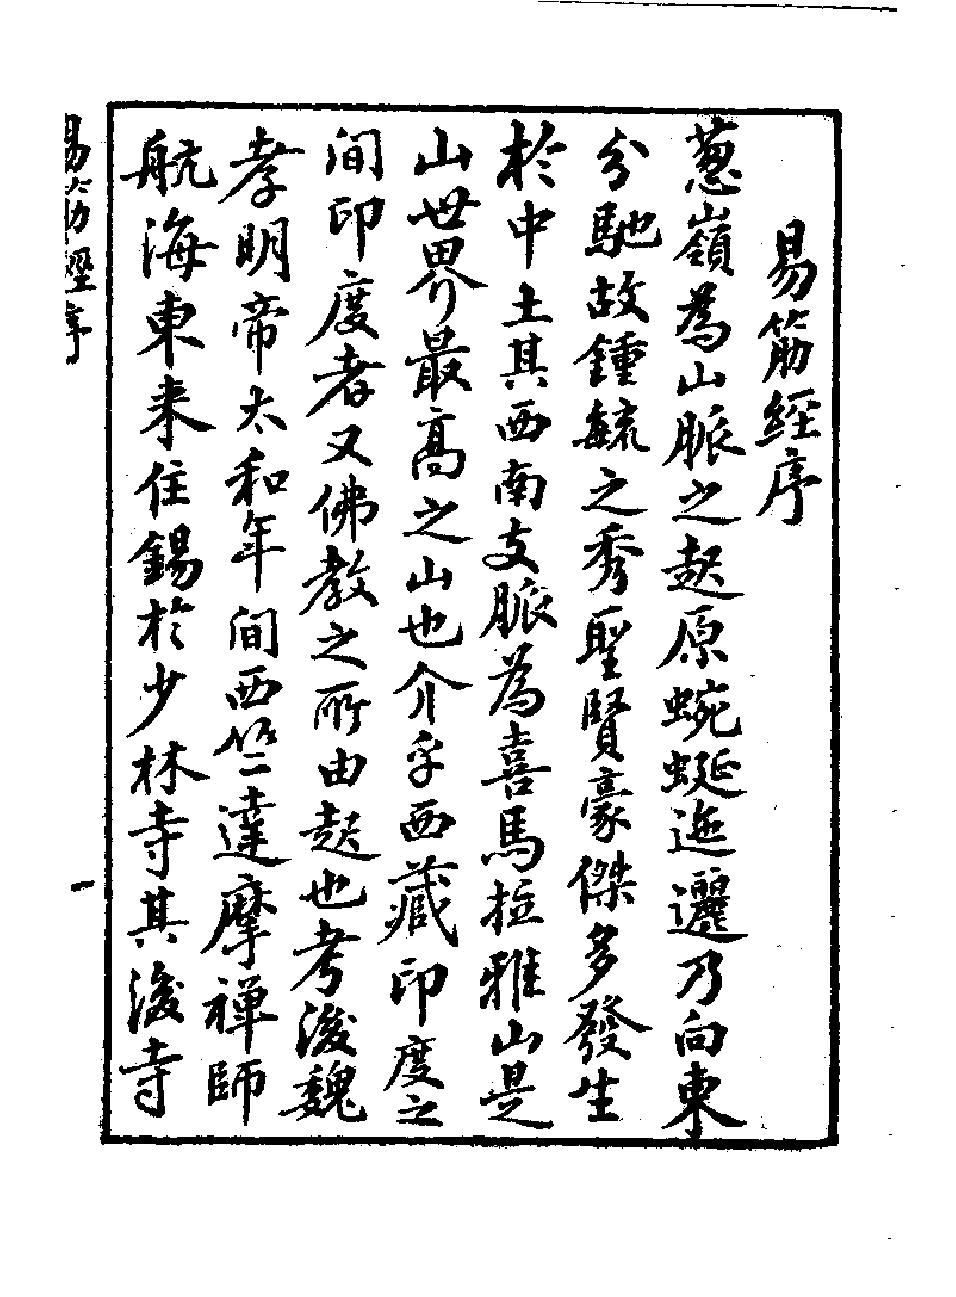 易筋經序
蔥嶺為山脈之起原蜿蜒迤邐乃向東
分馳故鍾毓之秀聖賢豪傑多發生
於中土其西南支脈為喜馬拉雅山是
山世界最高之山也介乎西藏印度之
間印度者又佛教之所由起也考後魏
孝明帝太和年間西竺達摩禪師
航海東来住錫於少林寺其後寺
易筋經序
一